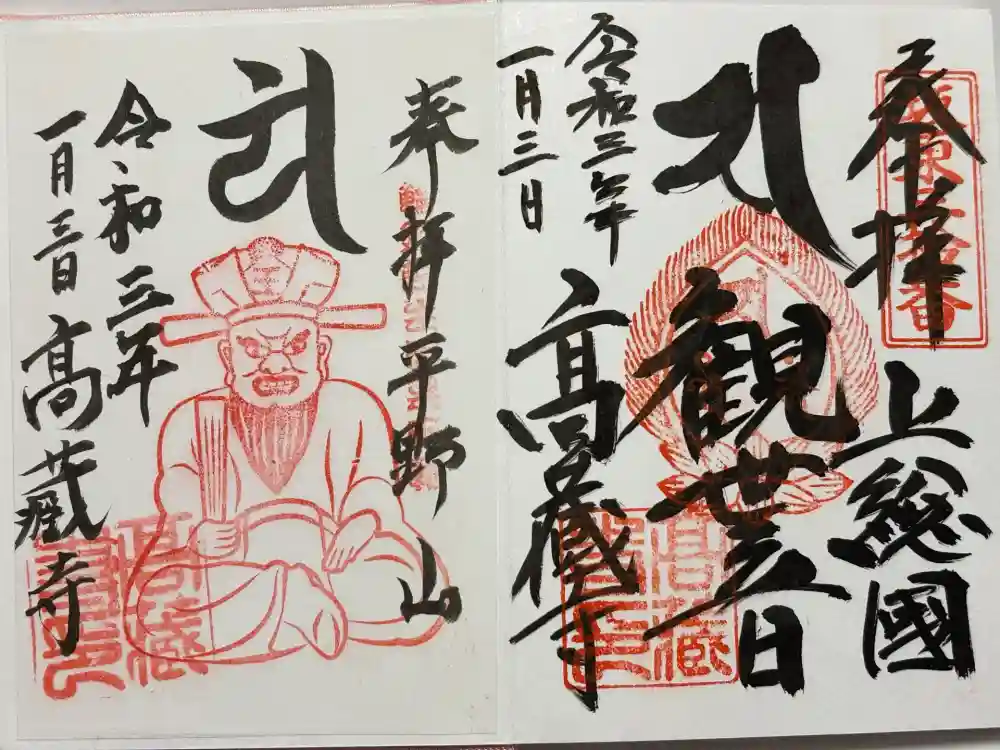 奉拝
上総國
観世音
高蔵寺
令和三年
一月三日
坂東三拾番
高蔵
奉拝 平野山
令和三年
一月三日
高蔵寺
高蔵